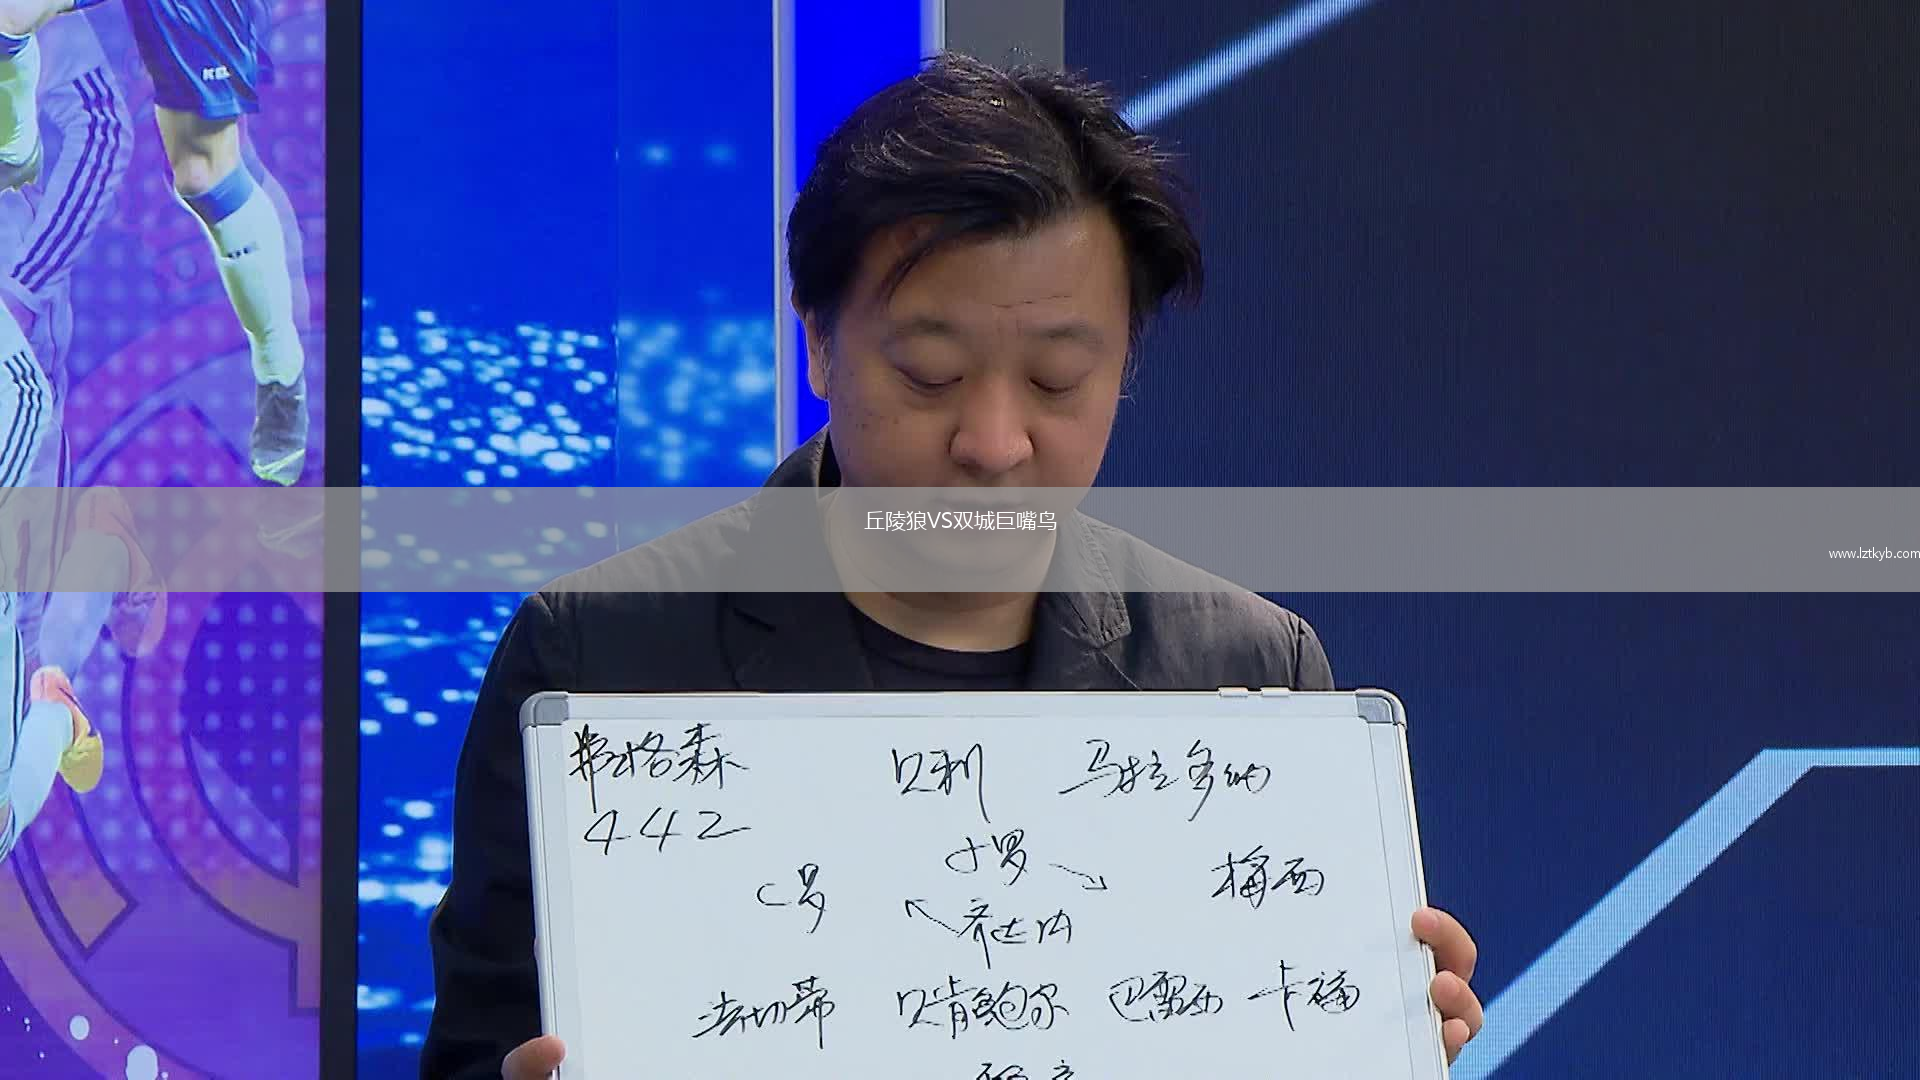 丘陵狼VS双城巨嘴鸟
www.lztkyb.com
弗格森 贝利 马拉多纳
442
小罗
C罗 梅西
齐达内
法切蒂 贝肯鲍尔 巴雷西 卡福